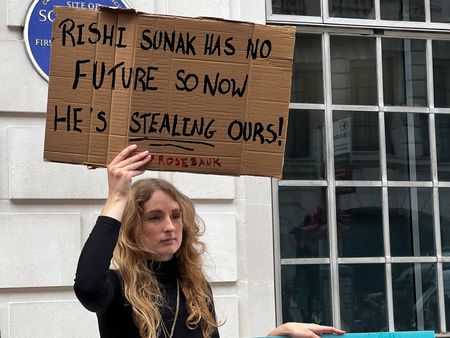 SITE OF
RISHI SUNAK HAS NO
FUTURE SO NOW
HE'S STEALING OURS!
ROSEBANK